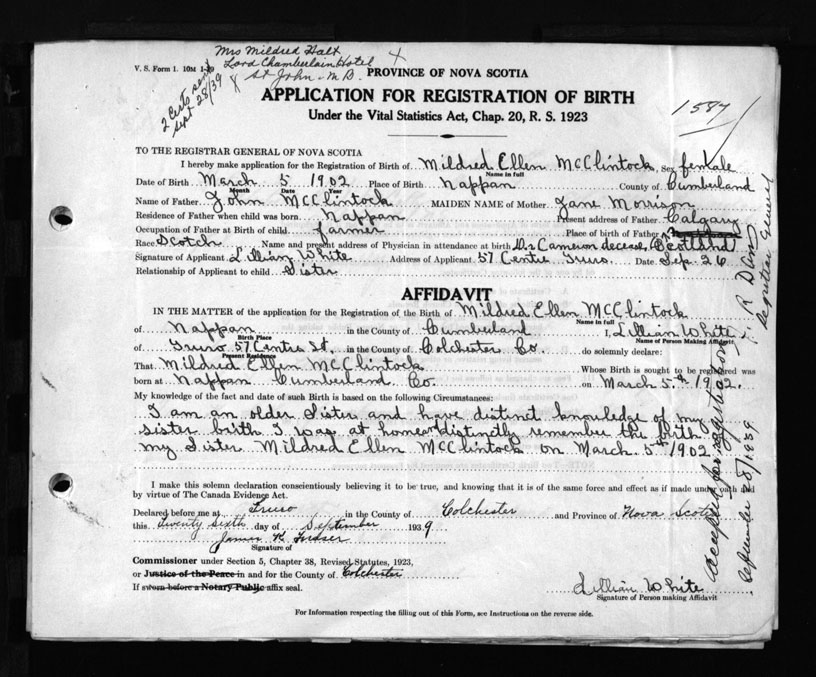 Mrs Mildred Halt
Lord Chamberlain Hotel
St John - N.B.
2 Certs sent
Sept 28/39
V. S. Form 1. 10M
PROVINCE OF NOVA SCOTIA
APPLICATION FOR REGISTRATION OF BIRTH
Under the Vital Statistics Act, Chap. 20, R. S. 1923
1587
TO THE REGISTRAR GENERAL OF NOVA SCOTIA
I hereby make application for the Registration of Birth of Mildred Ellen McClintock, Sex female
Name in full
Date of Birth March 5 1902 Place of Birth Nappan County of Cumberland
Month Date Year
Name of Father John McClintock MAIDEN NAME of Mother Jane Morrison
Residence of Father when child was born Nappan Present address of Father Calgary
Occupation of Father at Birth of child farmer Place of birth of Father
Race Scotch Name and present address of Physician in attendance at birth Dr Cameron decease, Scotland
Signature of Applicant Lillian White Address of Applicant 57 Centre Truro Date Sep. 26
Relationship of Applicant to child Sister
AFFIDAVIT
IN THE MATTER of the application for Registration of the Birth of Mildred Ellen McClintock
Name in full
of Nappan in the County of Cumberland I, Lillian White
Birth Place Name of Person Making Affidavit
of Truro 57 Centre St. in the County of Colchester Co. do solemnly declare:
Present Residence
That Mildred Ellen McClintock Whose Birth is sought to be registered was
born at Nappan Cumberland Co. on March 5.th 1902.
My knowledge of the fact and date of such Birth is based on the following Circumstances:
I am an older Sister and have distinct knowledge of my
sister birth I was at home and distinctly remember the birth of
my Sister Mildred Ellen McClintock on March 5th 1902
I make this solemn declaration conscientiously believing it to be true, and knowing that it is of the same force and effect as if made under oath and
by virtue of The Canada Evidence Act.
Declared before me at Truro in the County of Colchester and Province of Nova Scotia
this twenty sixth day of September 1939
Signature of
Commissioner under Section 5, Chapter 38, Revised Statutes, 1923,
or Justice of the Peace in and for the County of Colchester
If sworn before a Notary Public affix seal.
Lillian White
Signature of Person making Affidavit
For Information respecting the filling out of this Form, see Instructions on the reverse side.
Accepted for registration
September 28/1939
Registrar General